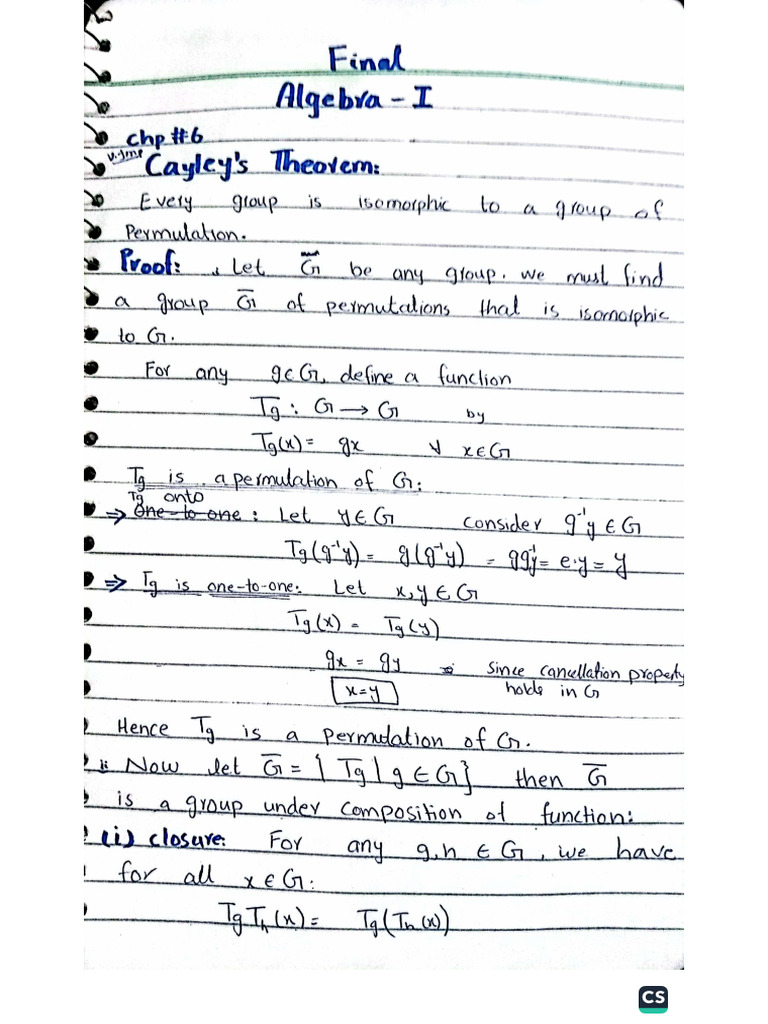 Final
Algebra - I
Chp #6
V.Imp Cayley's Theorem:
Every group is isomorphic to a group of
Permutation.
Proof: Let G be any group. we must find
a group G̅ of permutations that is isomorphic
to G.
For any g∈G, define a function
Tg : G → G by
Tg(x) = gx ∀ x∈G
Tg is a permutation of G:
Tg onto
⇒ one-to-one : Let y∈G consider g⁻¹y ∈G
Tg(g⁻¹y) = g(g⁻¹y) = gg⁻¹y = e·y = y
⇒ Tg is one-to-one: Let x,y ∈ G
Tg(x) = Tg(y)
gx = gy since cancellation property
x=y holds in G
Hence Tg is a permutation of G.
ii Now let G̅ = {Tg | g ∈ G} then G̅
is a group under composition of function:
(i) closure: For any g,h ∈ G, we have
for all x ∈ G:
TgTh(x) = Tg(Th(x))
CS